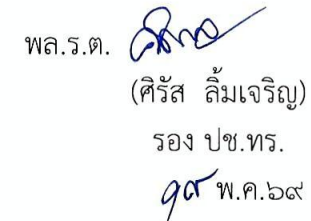 พล.ร.ต.
(ศิรัส ลิ้มเจริญ)
รอง ปช.ทร.
๑๙ พ.ค.๖๙